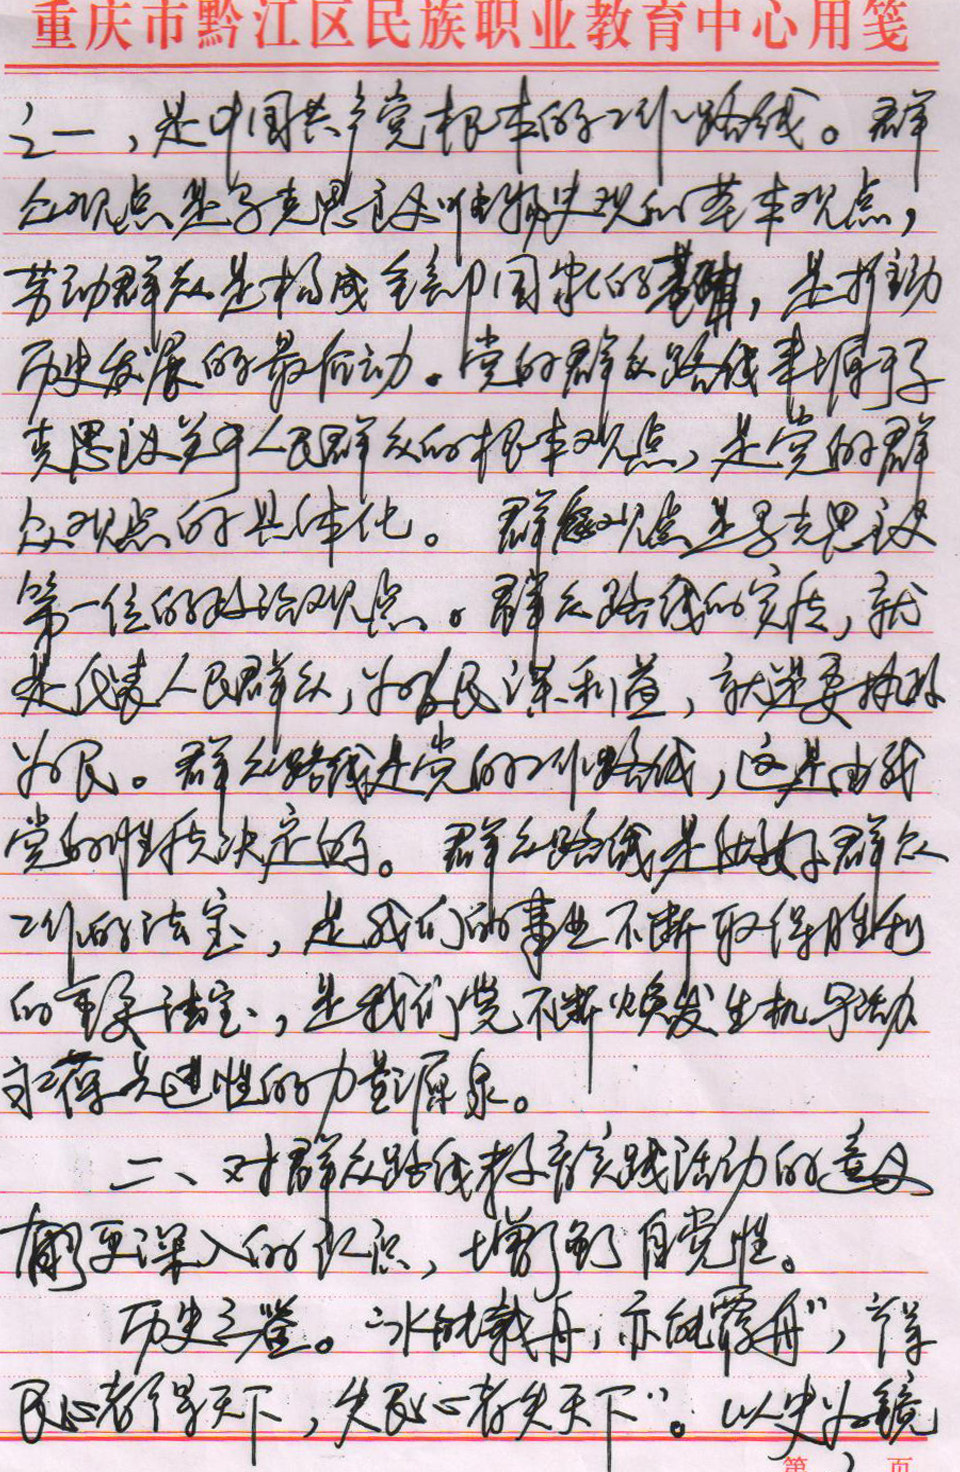 重庆市黔江区民族职业教育中心用笺
之一，是中国共产党根本的工作路线。群
众观点是马克思主义唯物史观的基本观点，
劳动群众是构成全部国家的基础，是推动
历史发展的最后动。党的群众路线来源于马
克思主义关于人民群众的根本观点，是党的群
众观点的具体化。群众观点是马克思主义
第一位的政治观点。群众路线的实质，就
是代表人民群众，为人民谋利益，就是要执政
为民。群众路线是党的工作路线，这是由我
党的性质决定的。群众路线是做好群众
工作的法宝，是我们的事业不断取得胜利
的重要法宝，是我们党不断焕发生机与活力
永葆先进性的力量源泉。
二、对群众路线教育实践活动的意义
有了更深入的认识，增强了自觉性。
历史之鉴。"水能载舟，亦能覆舟"，"得
民心者得天下，失民心者失天下"。以史为镜
第 2 页